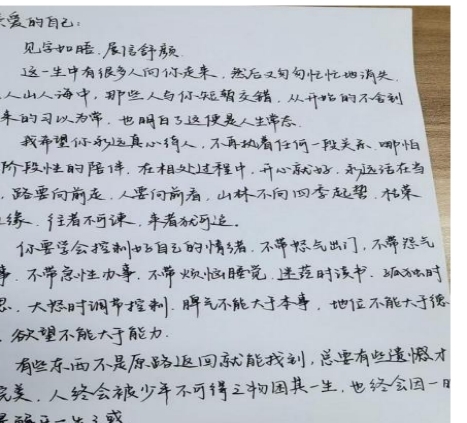 亲爱的自己：
见字如晤，展信舒颜
这一生中有很多人向你走来，然后又匆匆忙忙地消失
人山人海中，那些人与你短暂交错，从开始的不舍到
来的习以为常，也明白了这便是人生常态
我希望你永远真心待人，不再执着任何一段关系，哪怕
阶段性的陪伴，在相处过程中，开心就好，永远活在当
，路要向前走，人要向前看，山林不向四季起誓，枯荣
缘，往者不可谏，来者犹可追。
你要学会控制好自己的情绪，不带怒气出门，不带怨气
事，不带急性办事，不带烦恼睡觉，迷茫时读书，孤独时
思，大怒时调节控制，脾气不能大于本事，地位不能大于德
，欲望不能大于能力.
有些东西不是原路返回就能找到，总要有些遗憾才
完美，人终会被少年不可得之物困其一生，也终会因一
解一生之惑